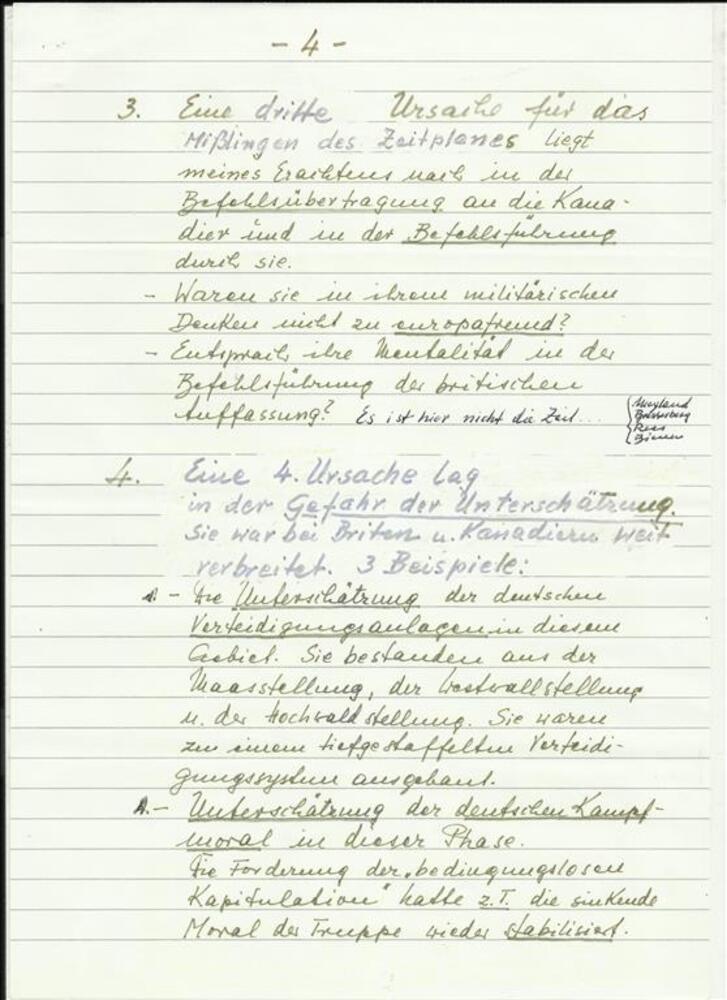 - 4 -
3. Eine dritte Ursache für das
Mißlingen des Zeitplanes liegt
meines Erachtens nach in der
Befehlsübertragung an die Kana-
dier und in der Befehlsführung
durch sie.
- Waren sie in ihrem militärischen
Denken nicht zu europafremd?
- Entsprach ihre Mentalität in der
Befehlsführung der britischen
Auffassung? Es ist hier nicht die Zeit...
Moyland
Rees
Bienen
4. Eine 4. Ursache lag
in der Gefahr der Unterschätzung.
Sie war bei Briten u. Kanadiern weit
verbreitet. 3 Beispiele:
1. - Die Unterschätzung der deutschen
Verteidigungsanlagen in diesem
Gebiet. Sie bestanden aus der
Maasstellung, der Westwallstellung
u. der Hochwaldstellung. Sie waren
zu einem tiefgestaffelten Verteidi-
gungssystem ausgebaut.
- Unterschätzung der deutschen Kampf-
moral in dieser Phase.
Die Forderung der „bedingungslosen
Kapitulation" hatte z.T. die sinkende
Moral der Truppe wieder stabilisiert.